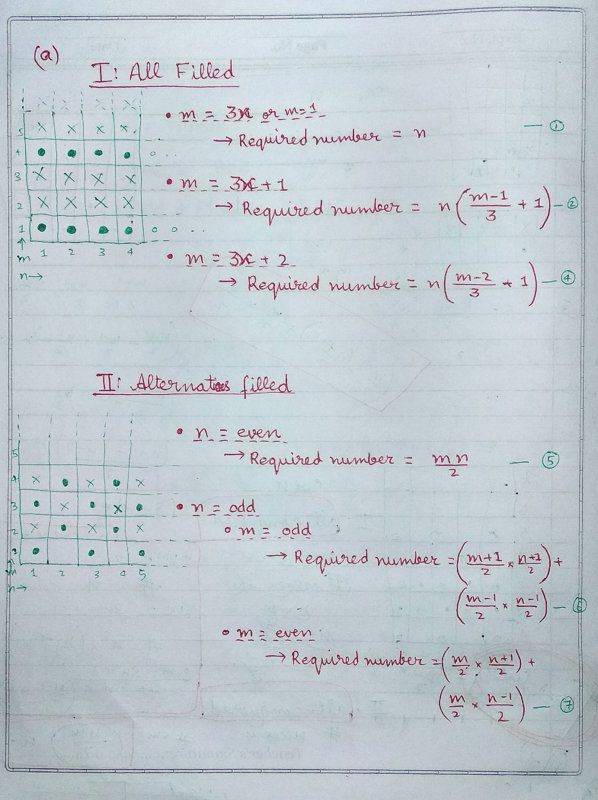 (a)
I: All Filled
• m = 3x or m=1
→ Required number = n — ①
• m = 3x+1
→ Required number = n (m-1/3 + 1) — ②
• m = 3x + 2
→ Required number = n (m-2/3 + 1) — ④
5 x x x x
4 • • • • o ..
3 x x x x
2 x x x x
1 • • • • o o ..
m 1 2 3 4
n→
II: Alternates filled
• n = even
→ Required number = mn/2 — ⑤
• n = odd
• m = odd
→ Required number = (m+1/2 × n+1/2) +
(m-1/2 × n-1/2) — ⑥
• m = even
→ Required number = (m/2 × n+1/2) +
(m/2 × n-1/2) — ⑦
5
4 x • x • x
3 • x • x •
2 x • x • x
• • •
m 1 2 3 4 5
n→